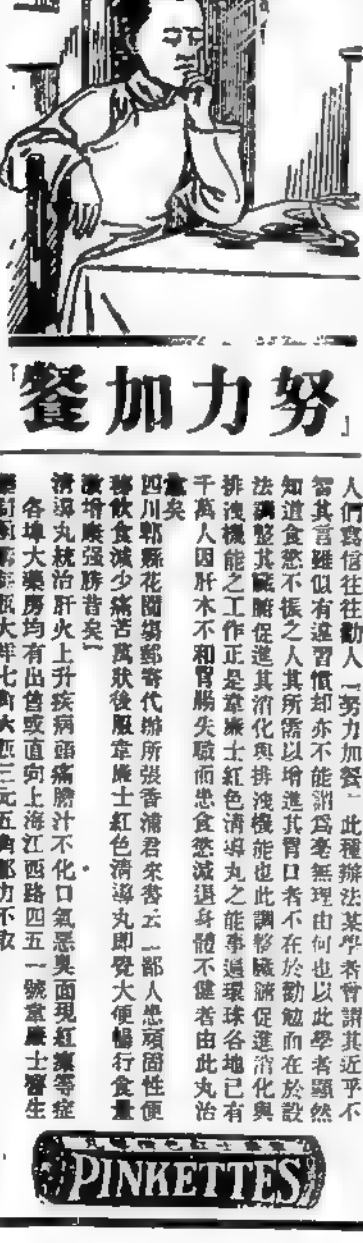 『努力加餐』
人們寫信往往勸人「努力加餐」此種辦法某學者曾謂其近乎不
智其言雖似有違習慣却亦不能謂爲毫無理由何也以此學者顯然
知道食慾不振之人其所需以增進其胃口者不在於勸勉而在於設
法調整其臟腑促進其消化與排洩機能也此調整臟腑促進消化與
排洩機能之工作正是韋廉士紅色清導丸之能事遍環球各地已有
千萬人因肝木不和胃腸失職而患食慾減退身體不健者由此丸治
矣
四川郫縣花園場郵寄代辦所張香浦君來書云「鄙人患頑固性便
飲食減少痛苦萬狀後服韋廉士紅色清導丸即覺大便暢行食量
增康强勝昔矣」
清導丸統治肝火上升疾病頭痛膽汁不化口氣惡臭面現紅瘰等症
各埠大藥房均有出售或直向上海江西路四五一號韋廉士醫生
元五角郵力不取
PINKETTES